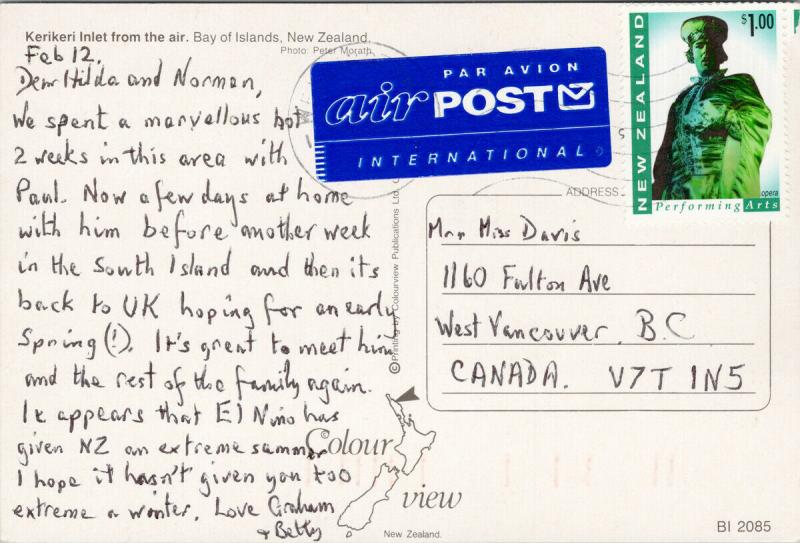 Kerikeri Inlet from the air. Bay of Islands, New Zealand.
Photo: Peter Morath
Feb 12.
Dear Hilda and Norman,
We spent a marvellous hot
2 weeks in this area with
Paul. Now a few days at home
with him before another week
in the South Island and then its
back to UK hoping for an early
Spring (!). It's great to meet him
and the rest of the family again.
It appears that El Nino has
given NZ an extreme summer
I hope it hasn't given you too
extreme a winter. Love Graham
+ Betty
PAR AVION
air POST
INTERNATIONAL
$1.00
NEW ZEALAND
opera
Performing Arts
ADDRESS
Mr + Miss Davis
1160 Fulton Ave
West Vancouver. B.C
CANADA. V7T 1N5
© Printing by Colourview Publications Ltd.
© Colour
view
New Zealand.
BI 2085